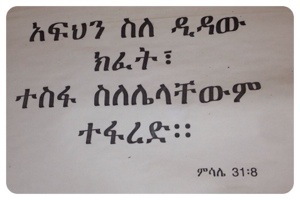 አፍህን ስለ ዲዳው
ክፈት፣
ተስፋ ስለሌላቸውም
ተፋረድ።
ምሳሌ 31:8